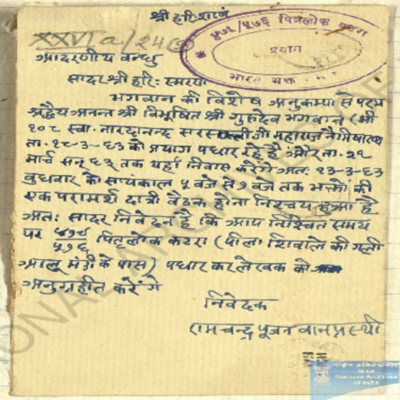 श्री हरि:शरणं
XXVI a/24
५७५/५७६ पितृलोक कटरा
प्रयाग
भारत भक्त
आदरणीय बन्धु
सादर श्री हरि: स्मरण
भगवान की विशेष अनुकम्पा से परम
श्रद्धेय अनन्त श्री विभूषित श्री गुरुदेव भगवान (श्री
१०८ स्वा. नारदानन्द सरस्वती जी महाराज नैमिषारण्य
ता. १८-३-६३ को प्रयाग पधार रहे हैं और ता. २१
मार्च सन् ६३ तक यहाँ निवास करेंगे अत: १३-३-६३
बुधवार के सायंकाल ५ बजे से ७ बजे तक भक्तों की
एक परामर्श दात्री बैठक होना निश्चय हुआ है
अत: सादर निवेदन है कि आप निश्चित समय
पर ५७५/५७६ पितृलोक कटरा (पीला शिवाले की गली
आलू मंडी के पास) पधार कर लेखक को
अनुग्रहीत करेंगे
निवेदक
रामचन्द्र पूजन वानप्रस्थी